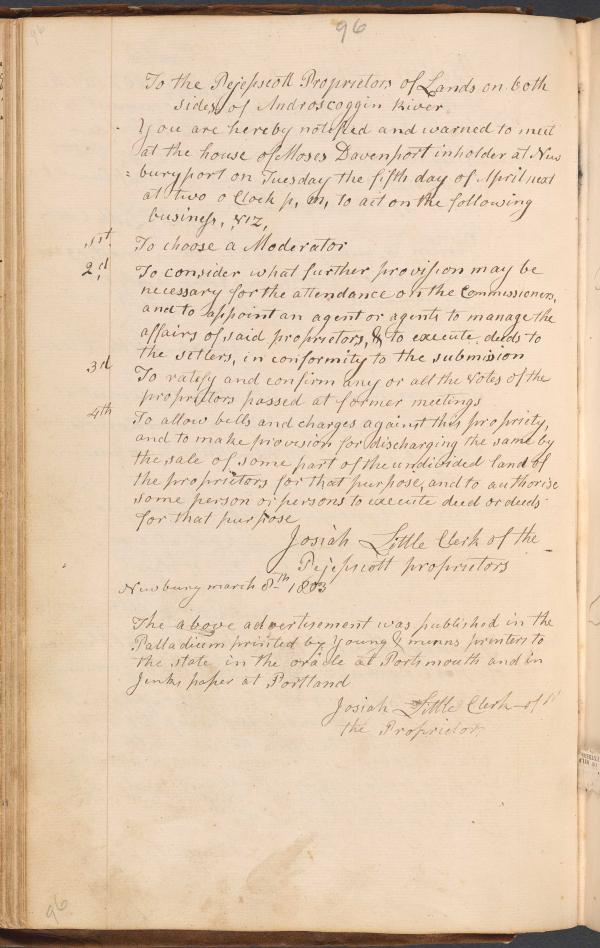 96
To the Pejepscott Proprietors of Lands on both
sides of Androscoggin River
You are hereby notified and warned to meet
at the house of Moses Davenport inholder at New
=buryport on Tuesday the fifth day of April next
at two o Clock p, m, to act on the following
business, viz,
1st. To choose a Moderator
2d. To consider what further provision may be
necessary for the attendance on the Commissioners,
and to appoint an agent or agents to manage the
affairs of said proprietors, & to execute deeds to
the settlers, in conformity to the submission
3d To ratify and confirm any or all the votes of the
proprietors passed at former meetings
4th To allow bills and charges against this propriety,
and to make provision for discharging the same by
the sale of some part of the undivided land of
the proprietors for that purpose, and to authorise
some person or persons to execute deed or deeds
for that purpose
Josiah Little Clerk of the
Pejepscott proprietors
Newbury march 8th 1803
The above advertisement was published in the
Palladium printed by Young & minns printers to
the state in the oracle at Portsmouth and in
Jenks paper at Portland
Josiah Little Clerk of
the Proprietors
96